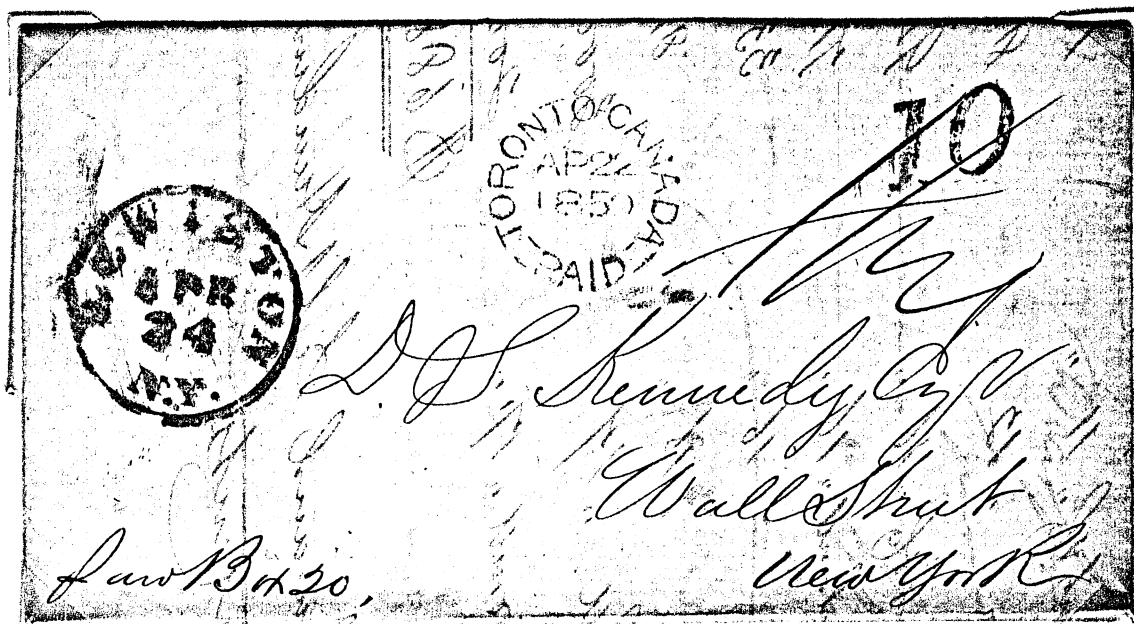 TORONTO CANADA
AP 22
1850
PAID
10
LEWISTON
APR
24
N.Y.
D. S. Kennedy Esqr
Wall Street
New York
Box 20,